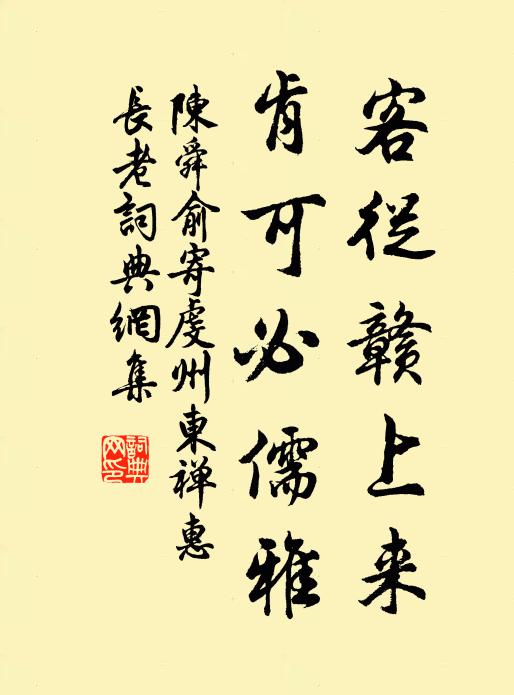 客從贛上来
肯可必儒雅
陳舜俞寄虔州東禅惠
長老詞典網集
詞典网印